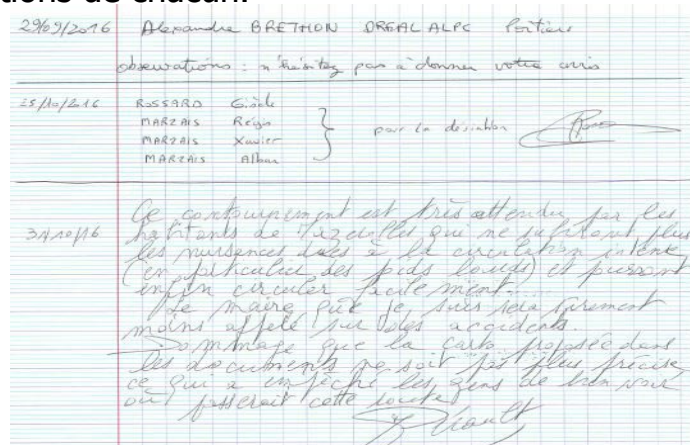 tions de chacun.
29/09/2016 Alexandre BRETHON DREAL ALPC Poitiers
observations : n'hésitez pas à donner votre avis
25/10/2016 ROSSARD Gisèle
MARZAIS Régis
MARZAIS Xavier pour la déviation
MARZAIS Alban
31/10/16 Ce contournement est très attendu par les
habitants de qui ne supportent plus
les nuisances dues à la circulation intense
(en particulier des poids lourds) et puissent
enfin circuler facilement...
Le maire que je suis sera sûrement
moins appelé sur des accidents.
Dommage que la carte proposée dans
les documents ne soit pas plus précise
ce qui a empêché les gens de bien voir
où passerait cette route